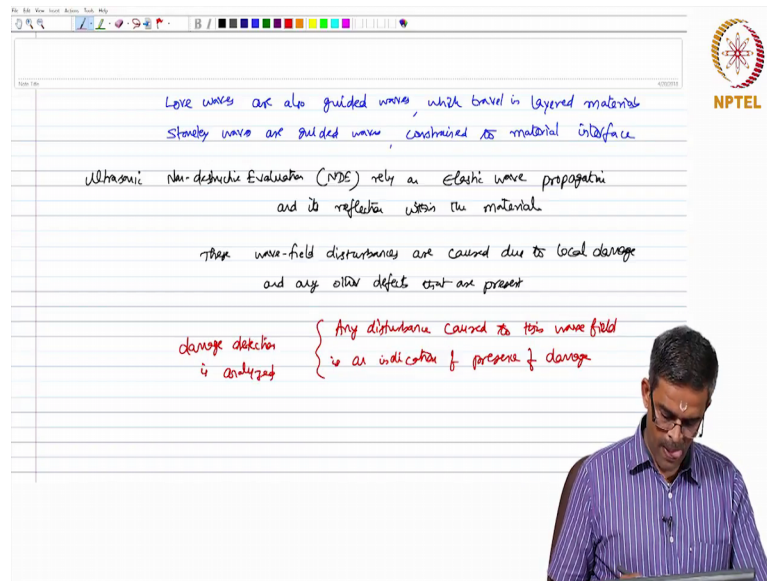 File Edit View Insert Actions Tools Help
B I
Note Title
4/20/2018
NPTEL
Love waves are also guided waves, which travel in layered materials
Stoneley wave are guided wave, constrained to material interface
Ultrasonic Non-destructive Evaluation (NDE) rely on Elastic wave propagation
and its reflection within the material
These wave-field disturbances are caused due to local damage
and any other defects that are present
damage detection
is analyzed
Any disturbance caused to this wave field
is an indication of presence of damage